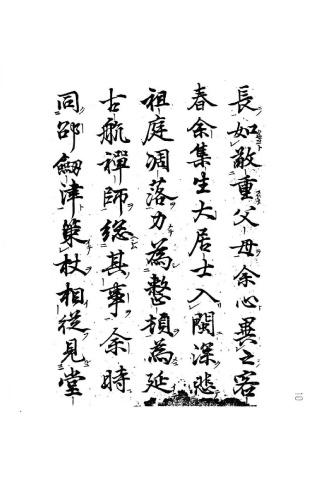 長如敬重父母余心異之客
春余集生大居士入閩深悲
祖庭凋落力為整頓為延
古航禪師総其事余時
同邵劔津策杖相從見堂
10